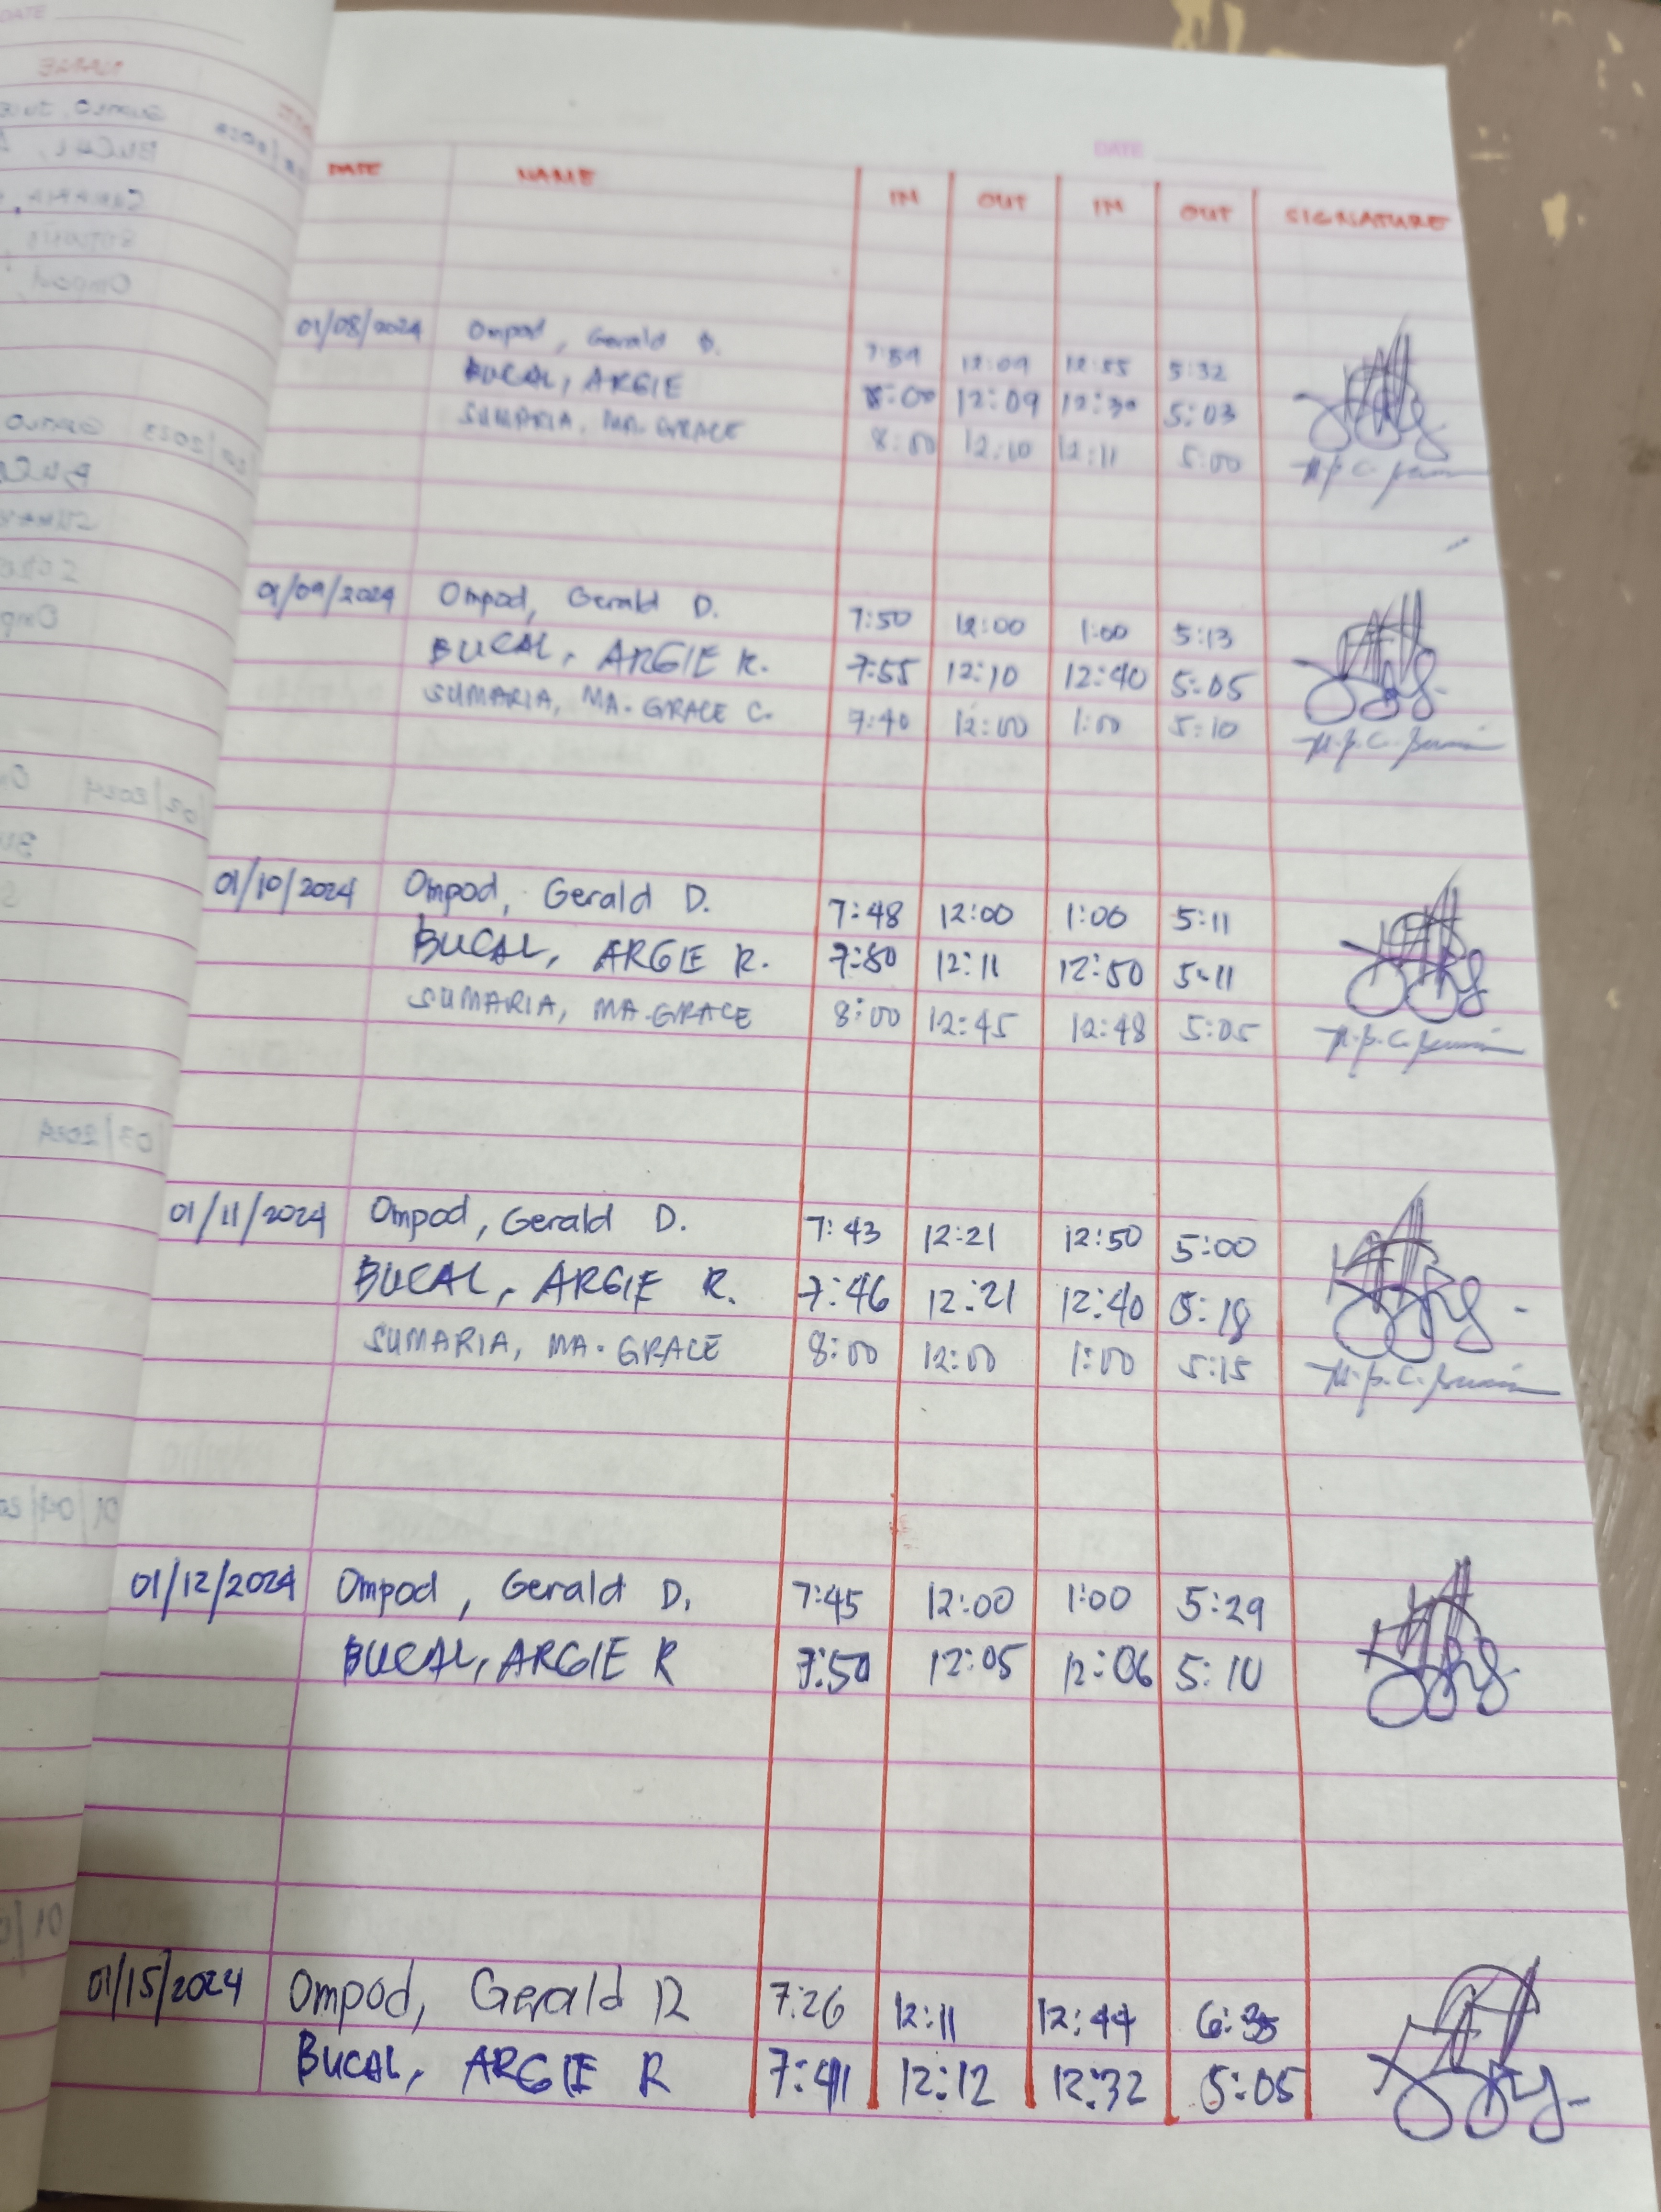 DATE
DATE NAME IN OUT IN OUT SIGNATURE
01/08/2024 Ompod, Gerald D. 7:59 12:09 12:55 5:32
BUCAL, ARGIE 8:00 12:09 12:30 5:03
SUMARIA, MA. GRACE 8:00 12:10 12:11 5:00
01/09/2024 Ompod, Gerald D. 7:50 12:00 1:00 5:13
BUCAL, ARGIE R. 7:55 12:10 12:40 5:05
SUMARIA, MA. GRACE C. 7:40 12:00 1:00 5:10
01/10/2024 Ompod, Gerald D. 7:48 12:00 1:00 5:11
BUCAL, ARGIE R. 7:50 12:11 12:50 5:11
SUMARIA, MA. GRACE 8:00 12:45 12:48 5:05
01/11/2024 Ompod, Gerald D. 7:43 12:21 12:50 5:00
BUCAL, ARGIE R. 7:46 12:21 12:40 5:18
SUMARIA, MA. GRACE 8:00 12:00 1:00 5:15
01/12/2024 Ompod, Gerald D. 7:45 12:00 1:00 5:29
BUCAL, ARGIE R 7:50 12:05 12:06 5:10
01/15/2024 Ompod, Gerald D 7:26 12:11 12:44 6:35
BUCAL, ARGIE R 7:41 12:12 12:32 5:05